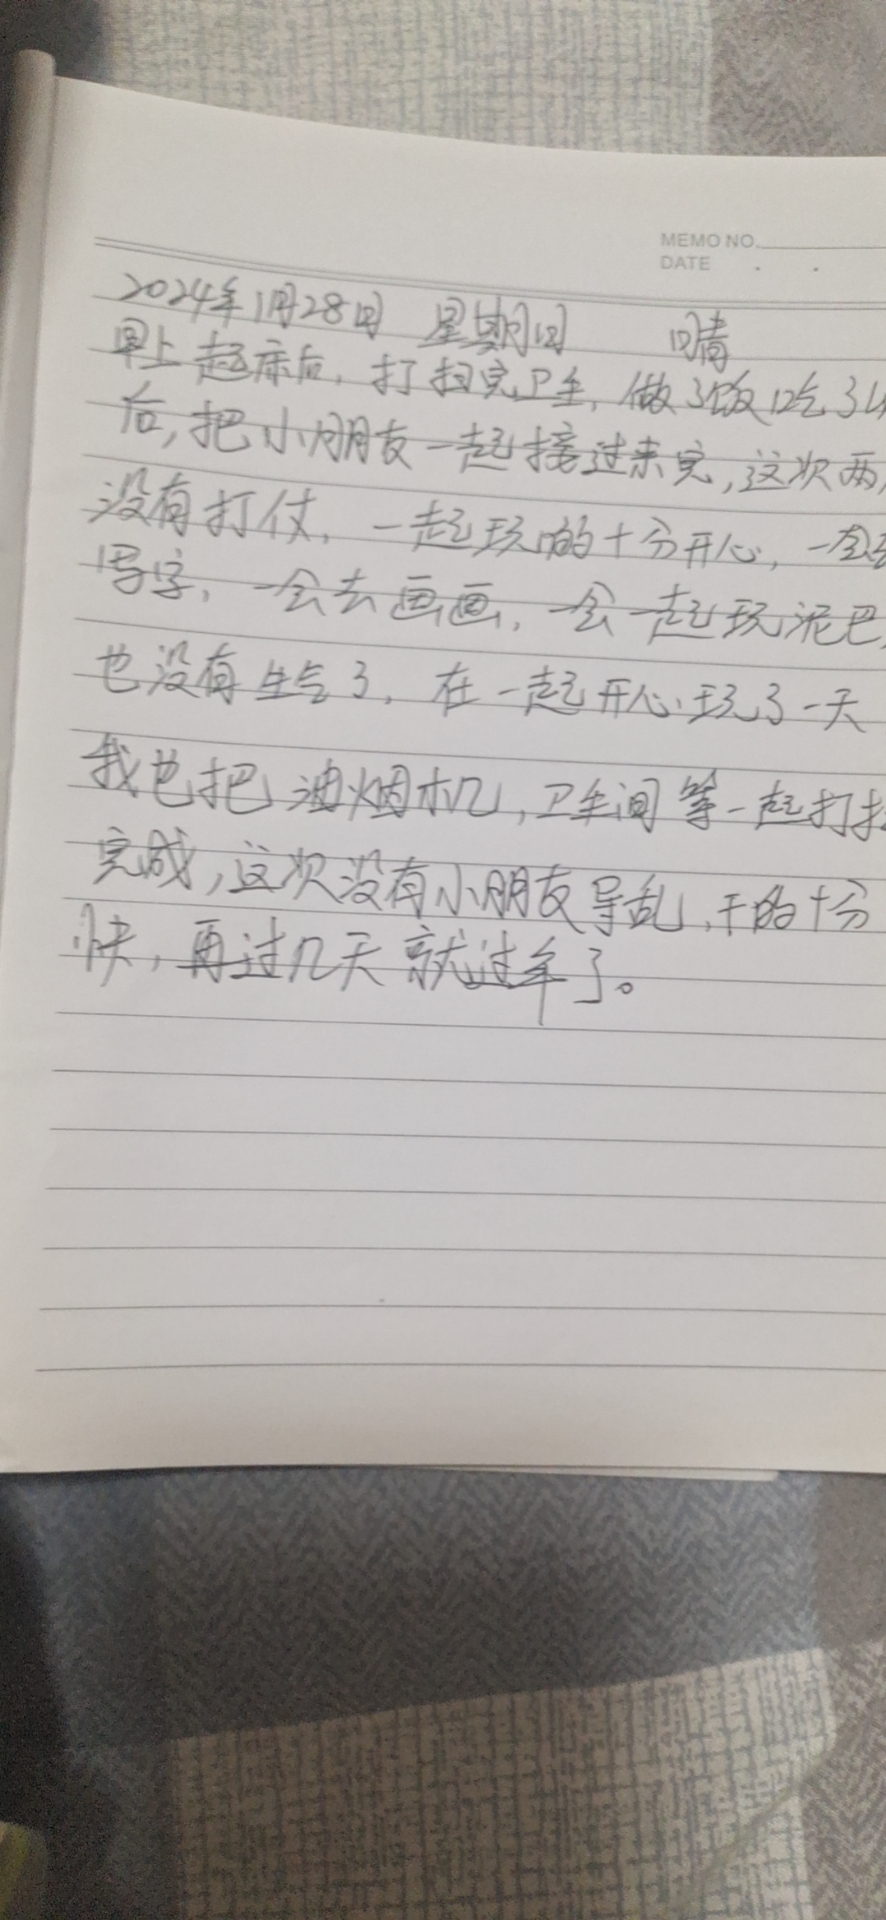 MEMO NO.
DATE . .
2024年1月28日 星期日 晴
早上起床后,打扫完卫生,做了饭吃了
后,把小朋友一起接过来完,这次两
没有打仗,一起玩的十分开心,一会
写字,一会去画画,一会一起玩泥巴,
也没有生气了,在一起开心玩了一天
我也把油烟机,卫生间等一起打扫
完成,这次没有小朋友导乱,干的十分
快,再过几天就过年了。